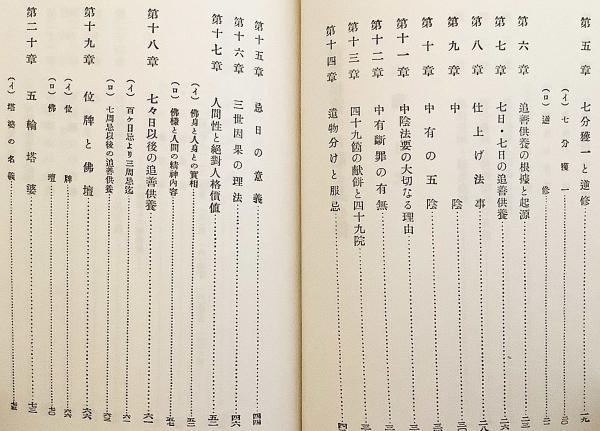 第五章 七分獲一と逆修…………一九
(イ) 七分獲一…………二〇
(ロ) 逆修…………二一
第六章 追善供養の根據と起源…………二三
第七章 七日・七日の追善供養…………二六
第八章 仕上げ法事…………二八
第九章 中陰
第十章 中有の五陰
第十一章 中陰法要の大切なる理由
第十二章 中有斷罪の有無
第十三章 四十九箇の獻餠と四十九院
第十四章 遺物分けと服忌
第十五章 忌日の意義…………四四
第十六章 三世因果の理法…………四六
第十七章 人間性と絕對人格價値…………五三
(イ) 佛身と人身との實相
(ロ) 佛樣と人間の精神內容…………五七
第十八章 七々日以後の追善供養…………六一
(イ) 百ケ日忌より三周忌迄…………六一
(ロ) 七周忌以後の追善供養
第十九章 位牌と佛壇…………六六
(イ) 位牌…………六六
(ロ) 佛壇…………七〇
第二十章 五輪塔婆…………七三
(イ) 塔婆の名義